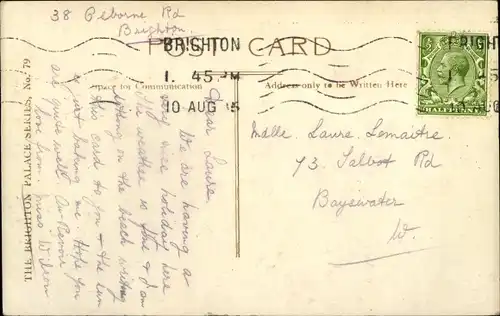 38 Peborne Rd
Brighton
POST CARD
BRIGHTON
1. 45 PM
10 AUG 15
BRIGHTON
10 AUG 15
Space for Communication
Address only to be Written Here
THE BRIGHTON PALACE SERIES, No. 79
Dear Laure
We are having a
very nice holiday here
the weather is fine & I am
sitting on the beach writing
this card to you & the sun
just baking me. Hope you
are quite well. Au Revoir
love from Miss Wilson
Mdlle. Laure Lemaitre
73 Talbot Rd
Bayswater
W.